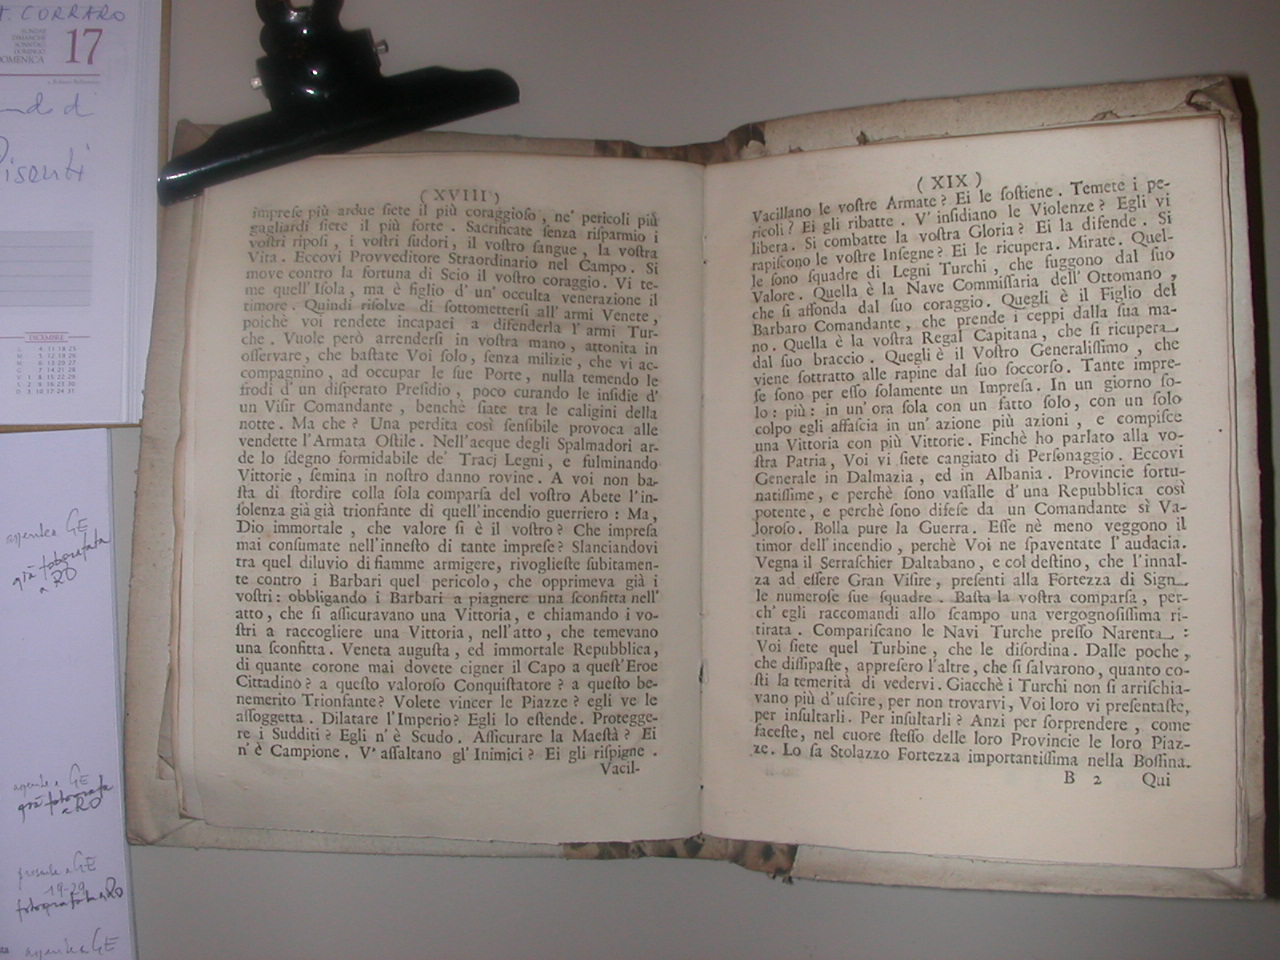 A. CORRARO
SUNDAY
DIMANCHE
SONNTAG
DOMINGO
DOMENICA
17
DICEMBRE
(XVIII)
impreſe più ardue ſiete il più coraggioſo, ne' pericoli più
gagliardi ſiete il più forte. Sacrificate ſenza riſparmio i
voſtri ripoſi, i voſtri ſudori, il voſtro ſangue, la voſtra
Vita. Eccovi Provveditore Straordinario nel Campo. Si
move contro la fortuna di Scio il voſtro coraggio. Vi te-
me quell'Iſola, ma è figlio d'un'occulta venerazione il
timore. Quindi riſolve di ſottometterſi all'armi Venete,
poichè voi rendete incapaci a difenderla l'armi Tur-
che. Vuole però arrenderſi in voſtra mano, attonita in
oſſervare, che baſtate Voi ſolo, ſenza milizie, che vi ac-
compagnino, ad occupar le ſue Porte, nulla temendo le
frodi d'un diſperato Preſidio, poco curando le inſidie d'
un Viſir Comandante, benchè ſiate tra le caligini della
notte. Ma che? Una perdita così ſenſibile provoca alle
vendette l'Armata Oſtile. Nell'acque degli Spalmadori ar-
de lo ſdegno formidabile de' Tracj Legni, e fulminando
Vittorie, ſemina in noſtro danno rovine. A voi non ba-
ſta di ſtordire colla ſola comparſa del voſtro Abete l'in-
ſolenza già già trionfante di quell'incendio guerriero: Ma,
Dio immortale, che valore ſi è il voſtro? Che impreſa
mai conſumate nell'inneſto di tante impreſe? Slanciandovi
tra quel diluvio di fiamme armigere, rivoglieſte ſubitamen-
te contro i Barbari quel pericolo, che opprimeva già i
voſtri: obbligando i Barbari a piagnere una ſconfitta nell'
atto, che ſi aſſicuravano una Vittoria, e chiamando i vo-
ſtri a raccogliere una Vittoria, nell'atto, che temevano
una ſconfitta. Veneta auguſta, ed immortale Repubblica,
di quante corone mai dovete cigner il Capo a queſt'Eroe
Cittadino? a queſto valoroſo Conquiſtatore? a queſto be-
nemerito Trionfante? Volete vincer le Piazze? egli ve le
aſſoggetta. Dilatare l'Imperio? Egli lo eſtende. Protegge-
re i Sudditi? Egli n'è Scudo. Aſſicurare la Maeſtà? Ei
n'è Campione. V'aſſaltano gl'Inimici? Ei gli riſpigne.
Vacil-
(XIX)
Vacillano le voſtre Armate? Ei le ſoſtiene. Temete i pe-
ricoli? Ei gli ribatte. V'inſidiano le Violenze? Egli vi
libera. Si combatte la voſtra Gloria? Ei la difende. Si
rapiſcono le voſtre Inſegne? Ei le ricupera. Mirate. Quel-
le ſono ſquadre di Legni Turchi, che fuggono dal ſuo
Valore. Quella è la Nave Commiſſaria dell'Ottomano,
che ſi affonda dal ſuo coraggio. Quegli è il Figlio del
Barbaro Comandante, che prende i ceppi dalla ſua ma-
no. Quella è la voſtra Regal Capitana, che ſi ricupera
dal ſuo braccio. Quegli è il Voſtro Generaliſſimo, che
viene ſottratto alle rapine dal ſuo ſoccorſo. Tante impre-
ſe ſono per eſſo ſolamente un Impreſa. In un giorno ſo-
lo: più: in un'ora ſola con un fatto ſolo, con un ſolo
colpo egli affaſcia in un'azione più azioni, e compiſce
una Vittoria con più Vittorie. Finchè ho parlato alla vo-
ſtra Patria, Voi vi ſiete cangiato di Perſonaggio. Eccovi
Generale in Dalmazia, ed in Albania. Provincie fortu-
natiſſime, e perchè ſono vaſſalle d'una Repubblica così
potente, e perchè ſono difeſe da un Comandante sì Va-
loroſo. Bolla pure la Guerra. Eſſe nè meno veggono il
timor dell'incendio, perchè Voi ne ſpaventate l'audacia.
Vegna il Serraſchier Daltabano, e col deſtino, che l'innal-
za ad eſſere Gran Viſire, preſenti alla Fortezza di Sign
le numeroſe ſue ſquadre. Baſta la voſtra comparſa, per-
ch'egli raccomandi allo ſcampo una vergognoſiſſima ri-
tirata. Compariſcano le Navi Turche preſſo Narenta:
Voi ſiete quel Turbine, che le diſordina. Dalle poche,
che diſſipaſte, appreſero l'altre, che ſi ſalvarono, quanto co-
ſti la temerità di vedervi. Giacchè i Turchi non ſi arriſchia-
vano più d'uſcire, per non trovarvi, Voi loro vi preſentaſte,
per inſultarli. Per inſultarli? Anzi per ſorprendere, come
faceſte, nel cuore ſteſſo delle loro Provincie le loro Piaz-
ze. Lo ſa Stolazzo Fortezza importantiſſima nella Boſſina.
B 2 Qui
GE
già fotografata
a RO
GE
già fotografata
a RO
GE
19-29
fotografata a RO
GE